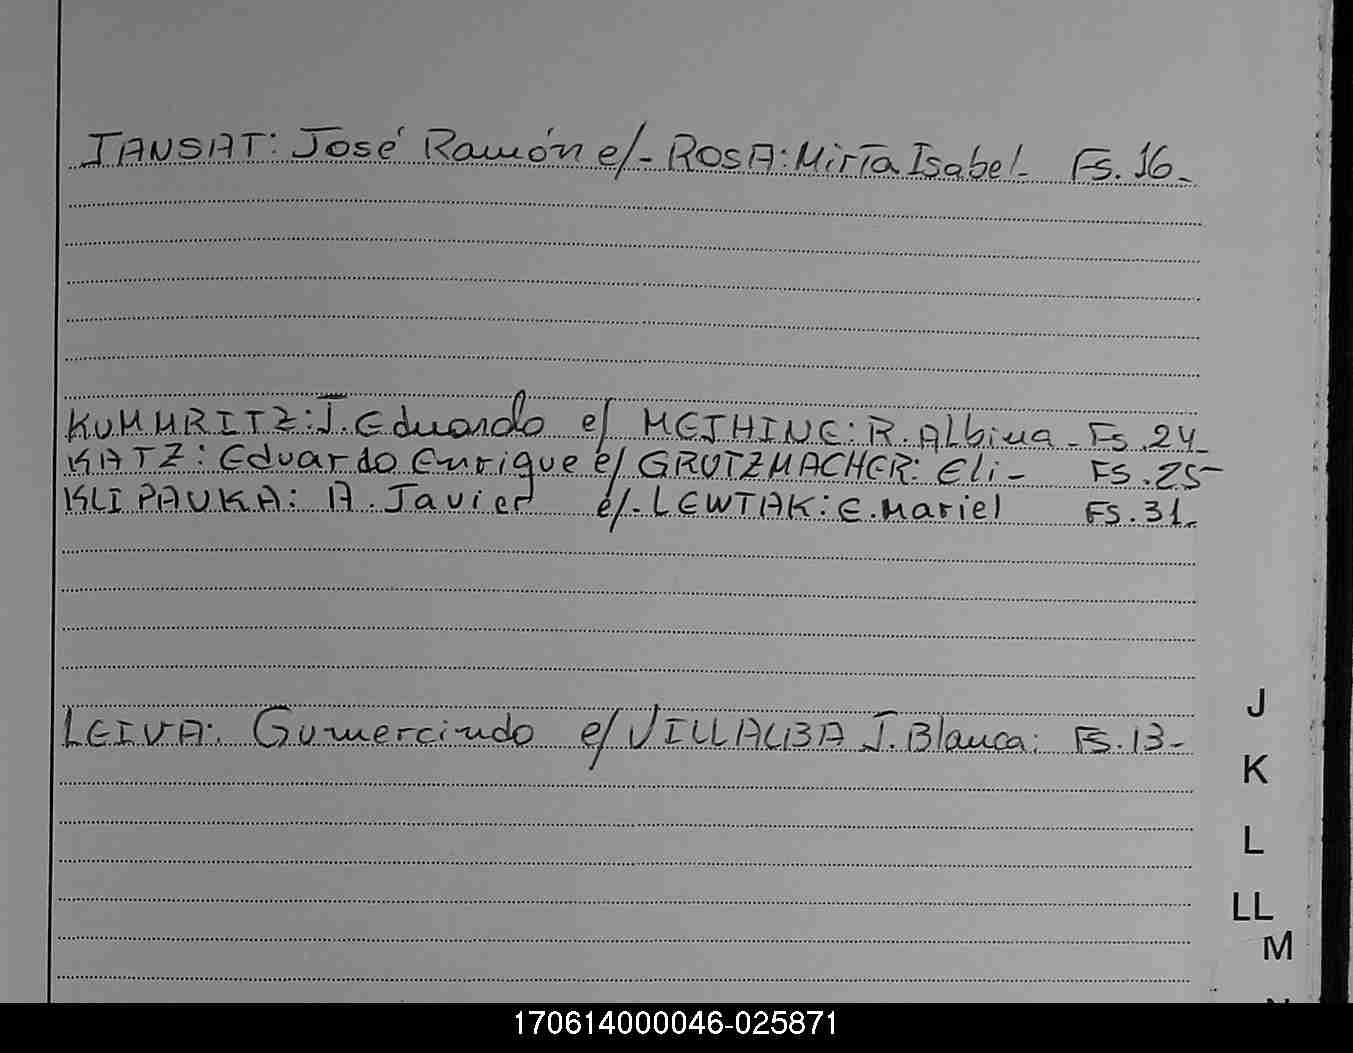 JANSAT: José Ramón e/- ROSA: Mirta Isabel- Fs. 16-
KUMMRITZ: J. Eduardo e/ METHINE: R. Albina - Fs. 24-
KATZ: Eduardo Enrique e/ GRUTZMACHER: Eli- FS. 25-
KLIPAUKA: A. Javier e/- LEWTAK: E. Mariel FS. 31-
LEIVA: Gumercindo e/ VILLALBA J. Blanca: FS. 13-
J
K
L
LL
M
170614000046-025871